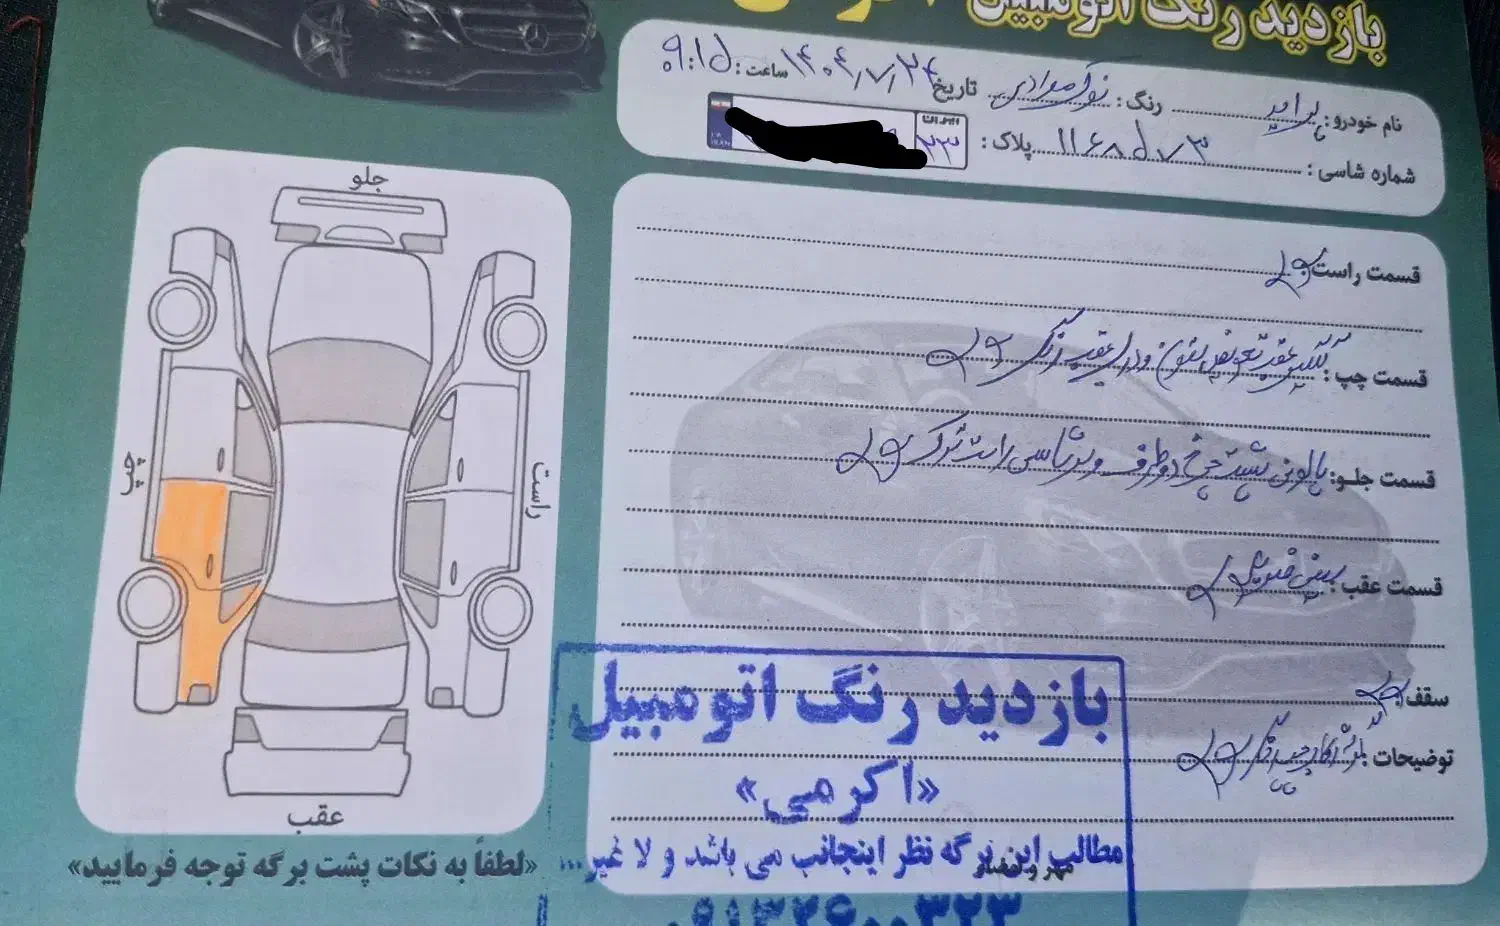 بازدید رنگ اتومبیل
نام خودرو: پراید رنگ: نوک مدادی تاریخ ۱۴۰۴/۷/۲۴ ساعت: ۰۹:۱۵
شماره شاسی: پلاک: ۱۱۶۸۵۷۳
ایران
۲۳
جلو
چپ
راست
عقب
قسمت راست:
قسمت چپ: گلگیر عقب تعویض ستون و درب عقب رنگ
قسمت جلو: پالونی پشت چرخ دو طرف و سر شاسی راست ترک
قسمت عقب: سینی تعویض
سقف:
توضیحات:
بازدید رنگ اتومبیل
«اکرمی»
مطالب این برگه نظر اینجانب می باشد و لا غیر...
مهر و امضاء
۰۹۱۳۲۶۰۰۳۲۳
«لطفاً به نکات پشت برگه توجه فرمایید»